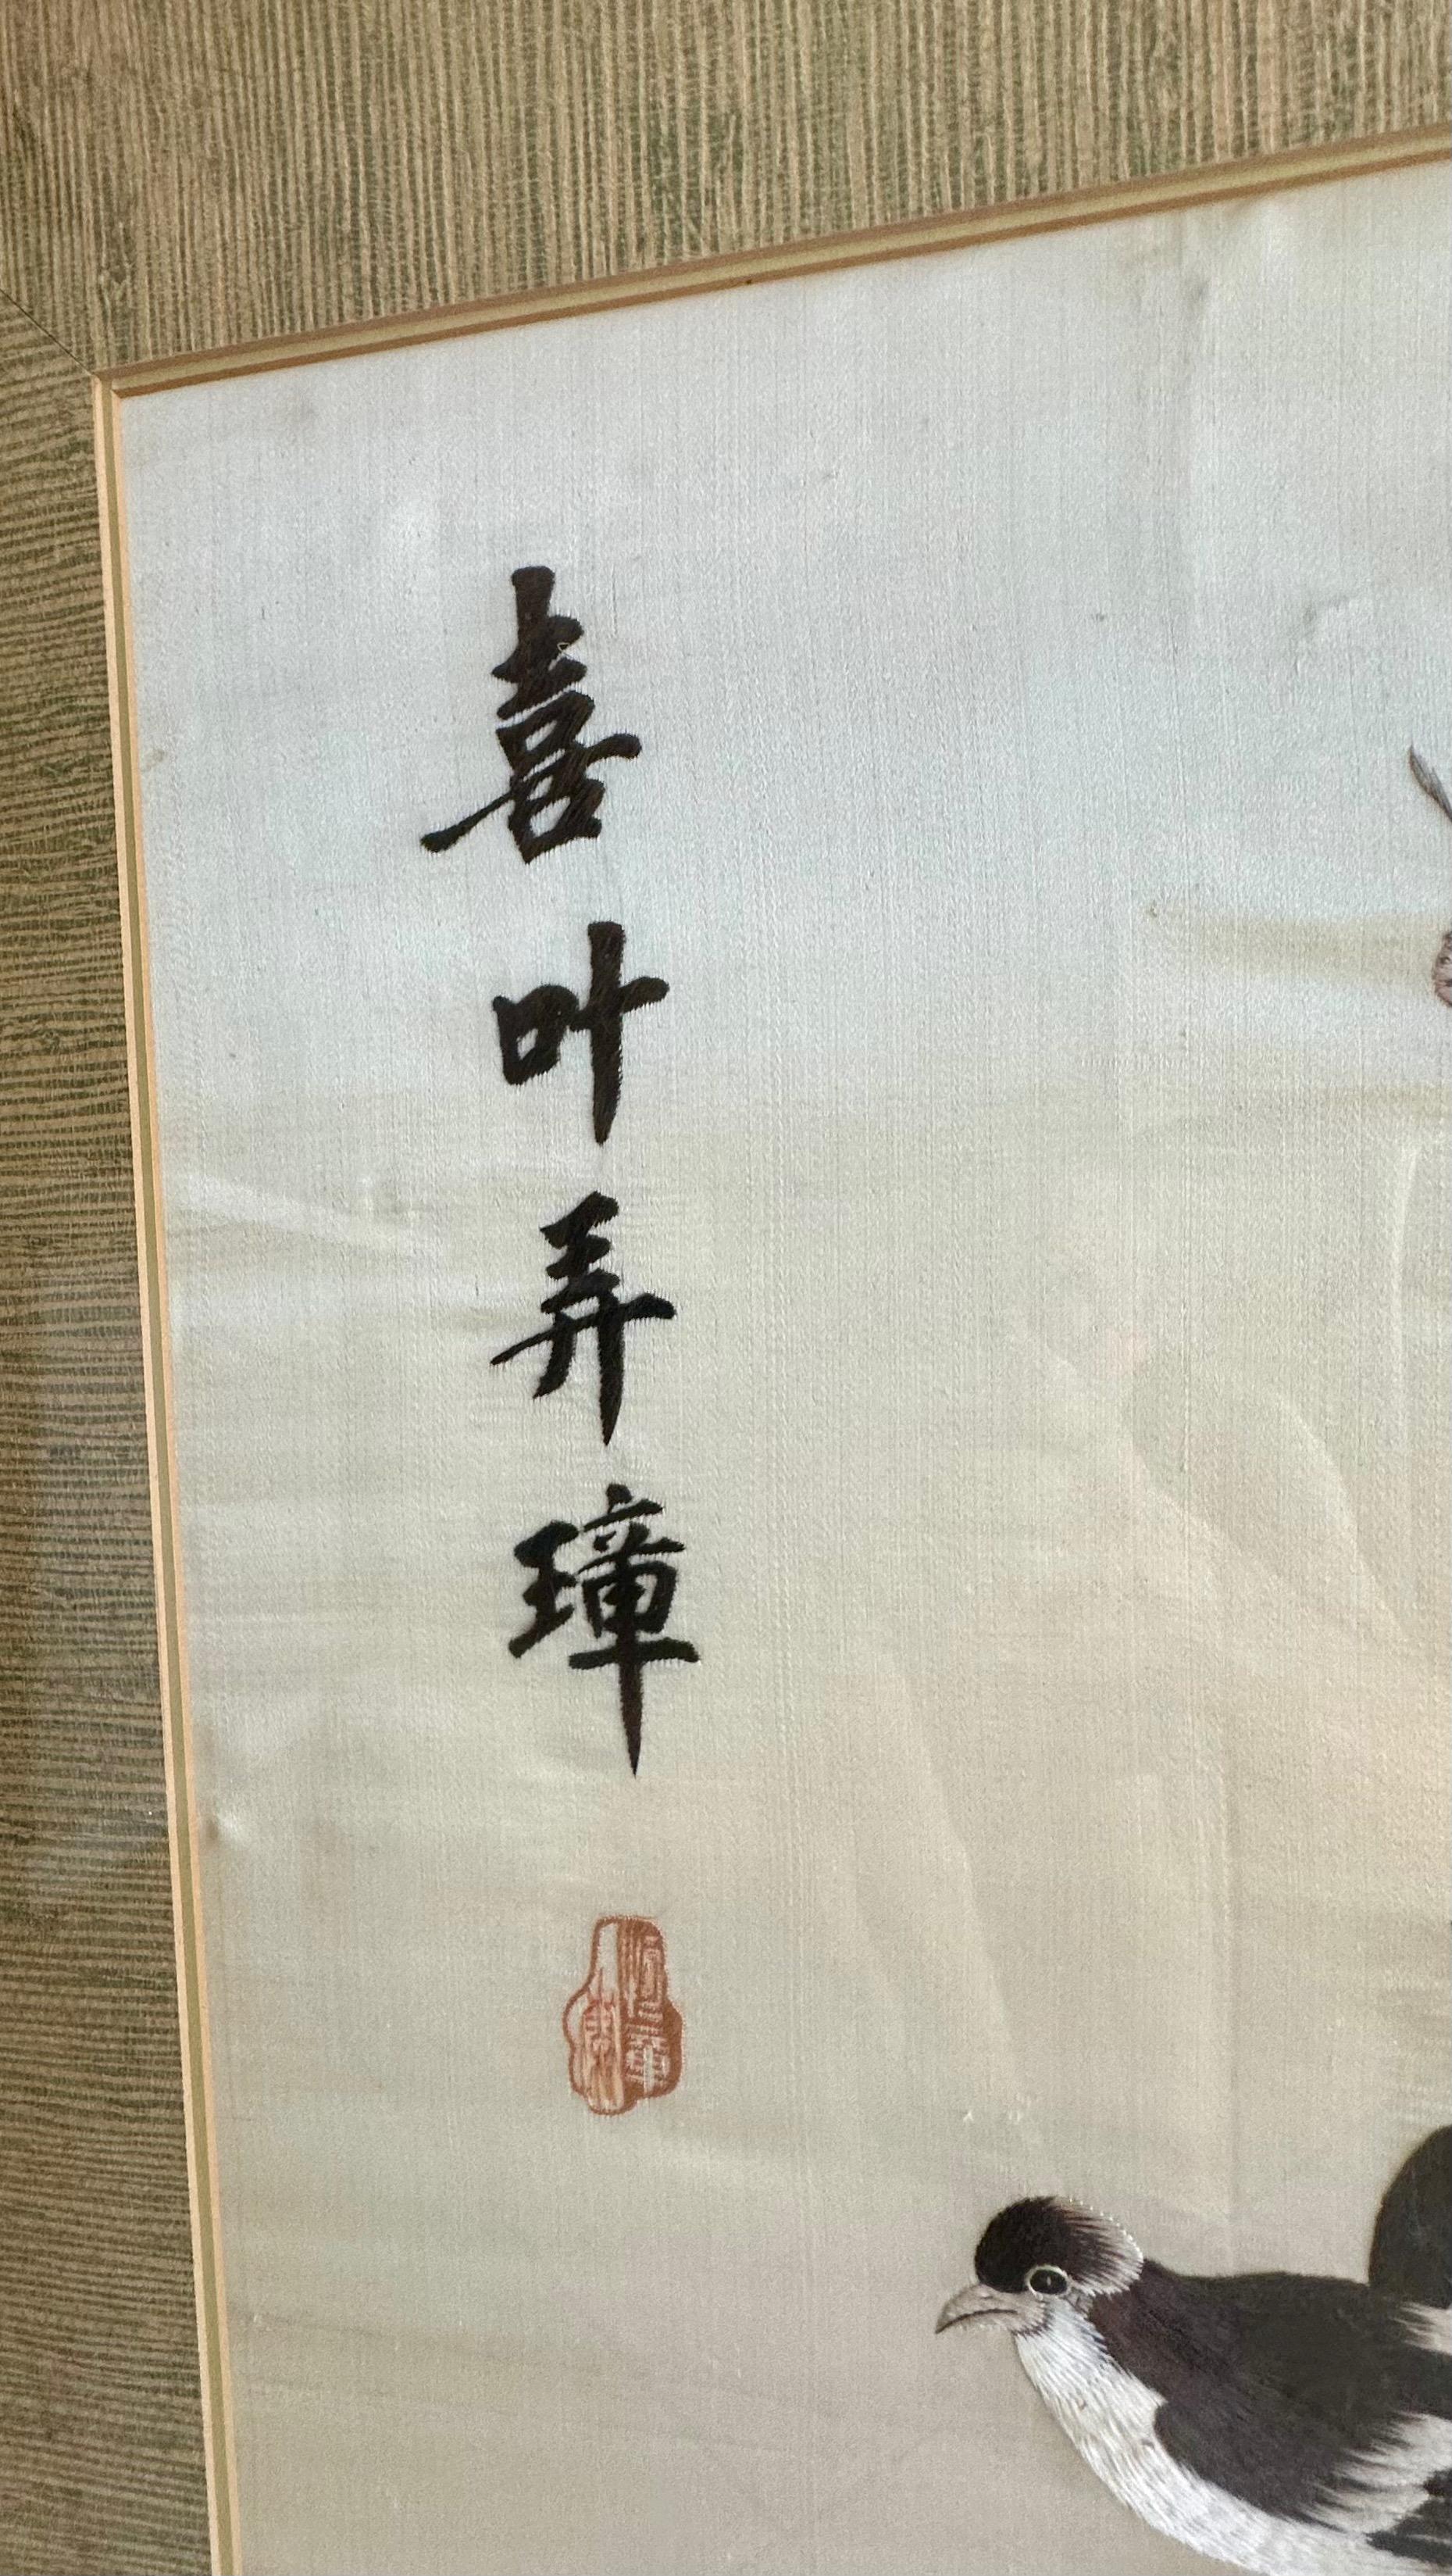 喜叶弄璋